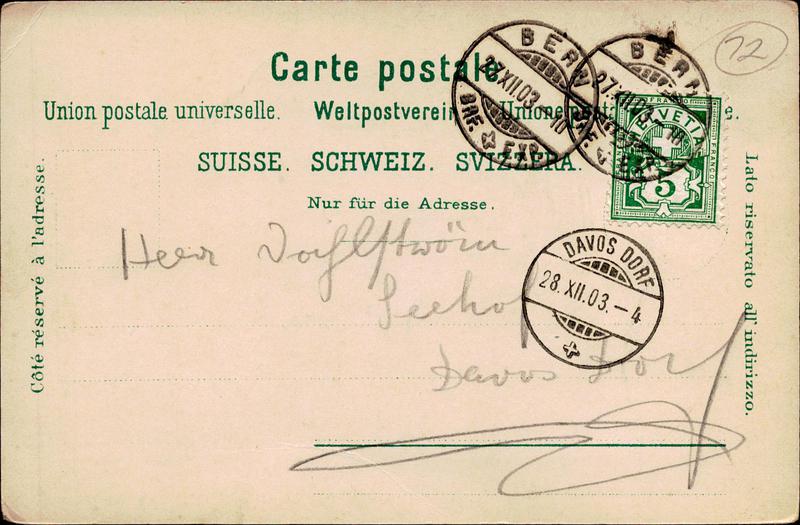 72
Carte postale.
Union postale universelle. Weltpostverein. Unione postale
SUISSE. SCHWEIZ. SVIZZERA.
Nur für die Adresse.
Côté réservé à l'adresse.
Lato riservato all' indirizzo.
BERN
27.XII.03.-10
BRF. EXP.
BERN
27.XII.03.
HELVETIA
FRANCO
5
DAVOS DORF
28.XII.03.-4
Herr
Seehof
Davos Dorf